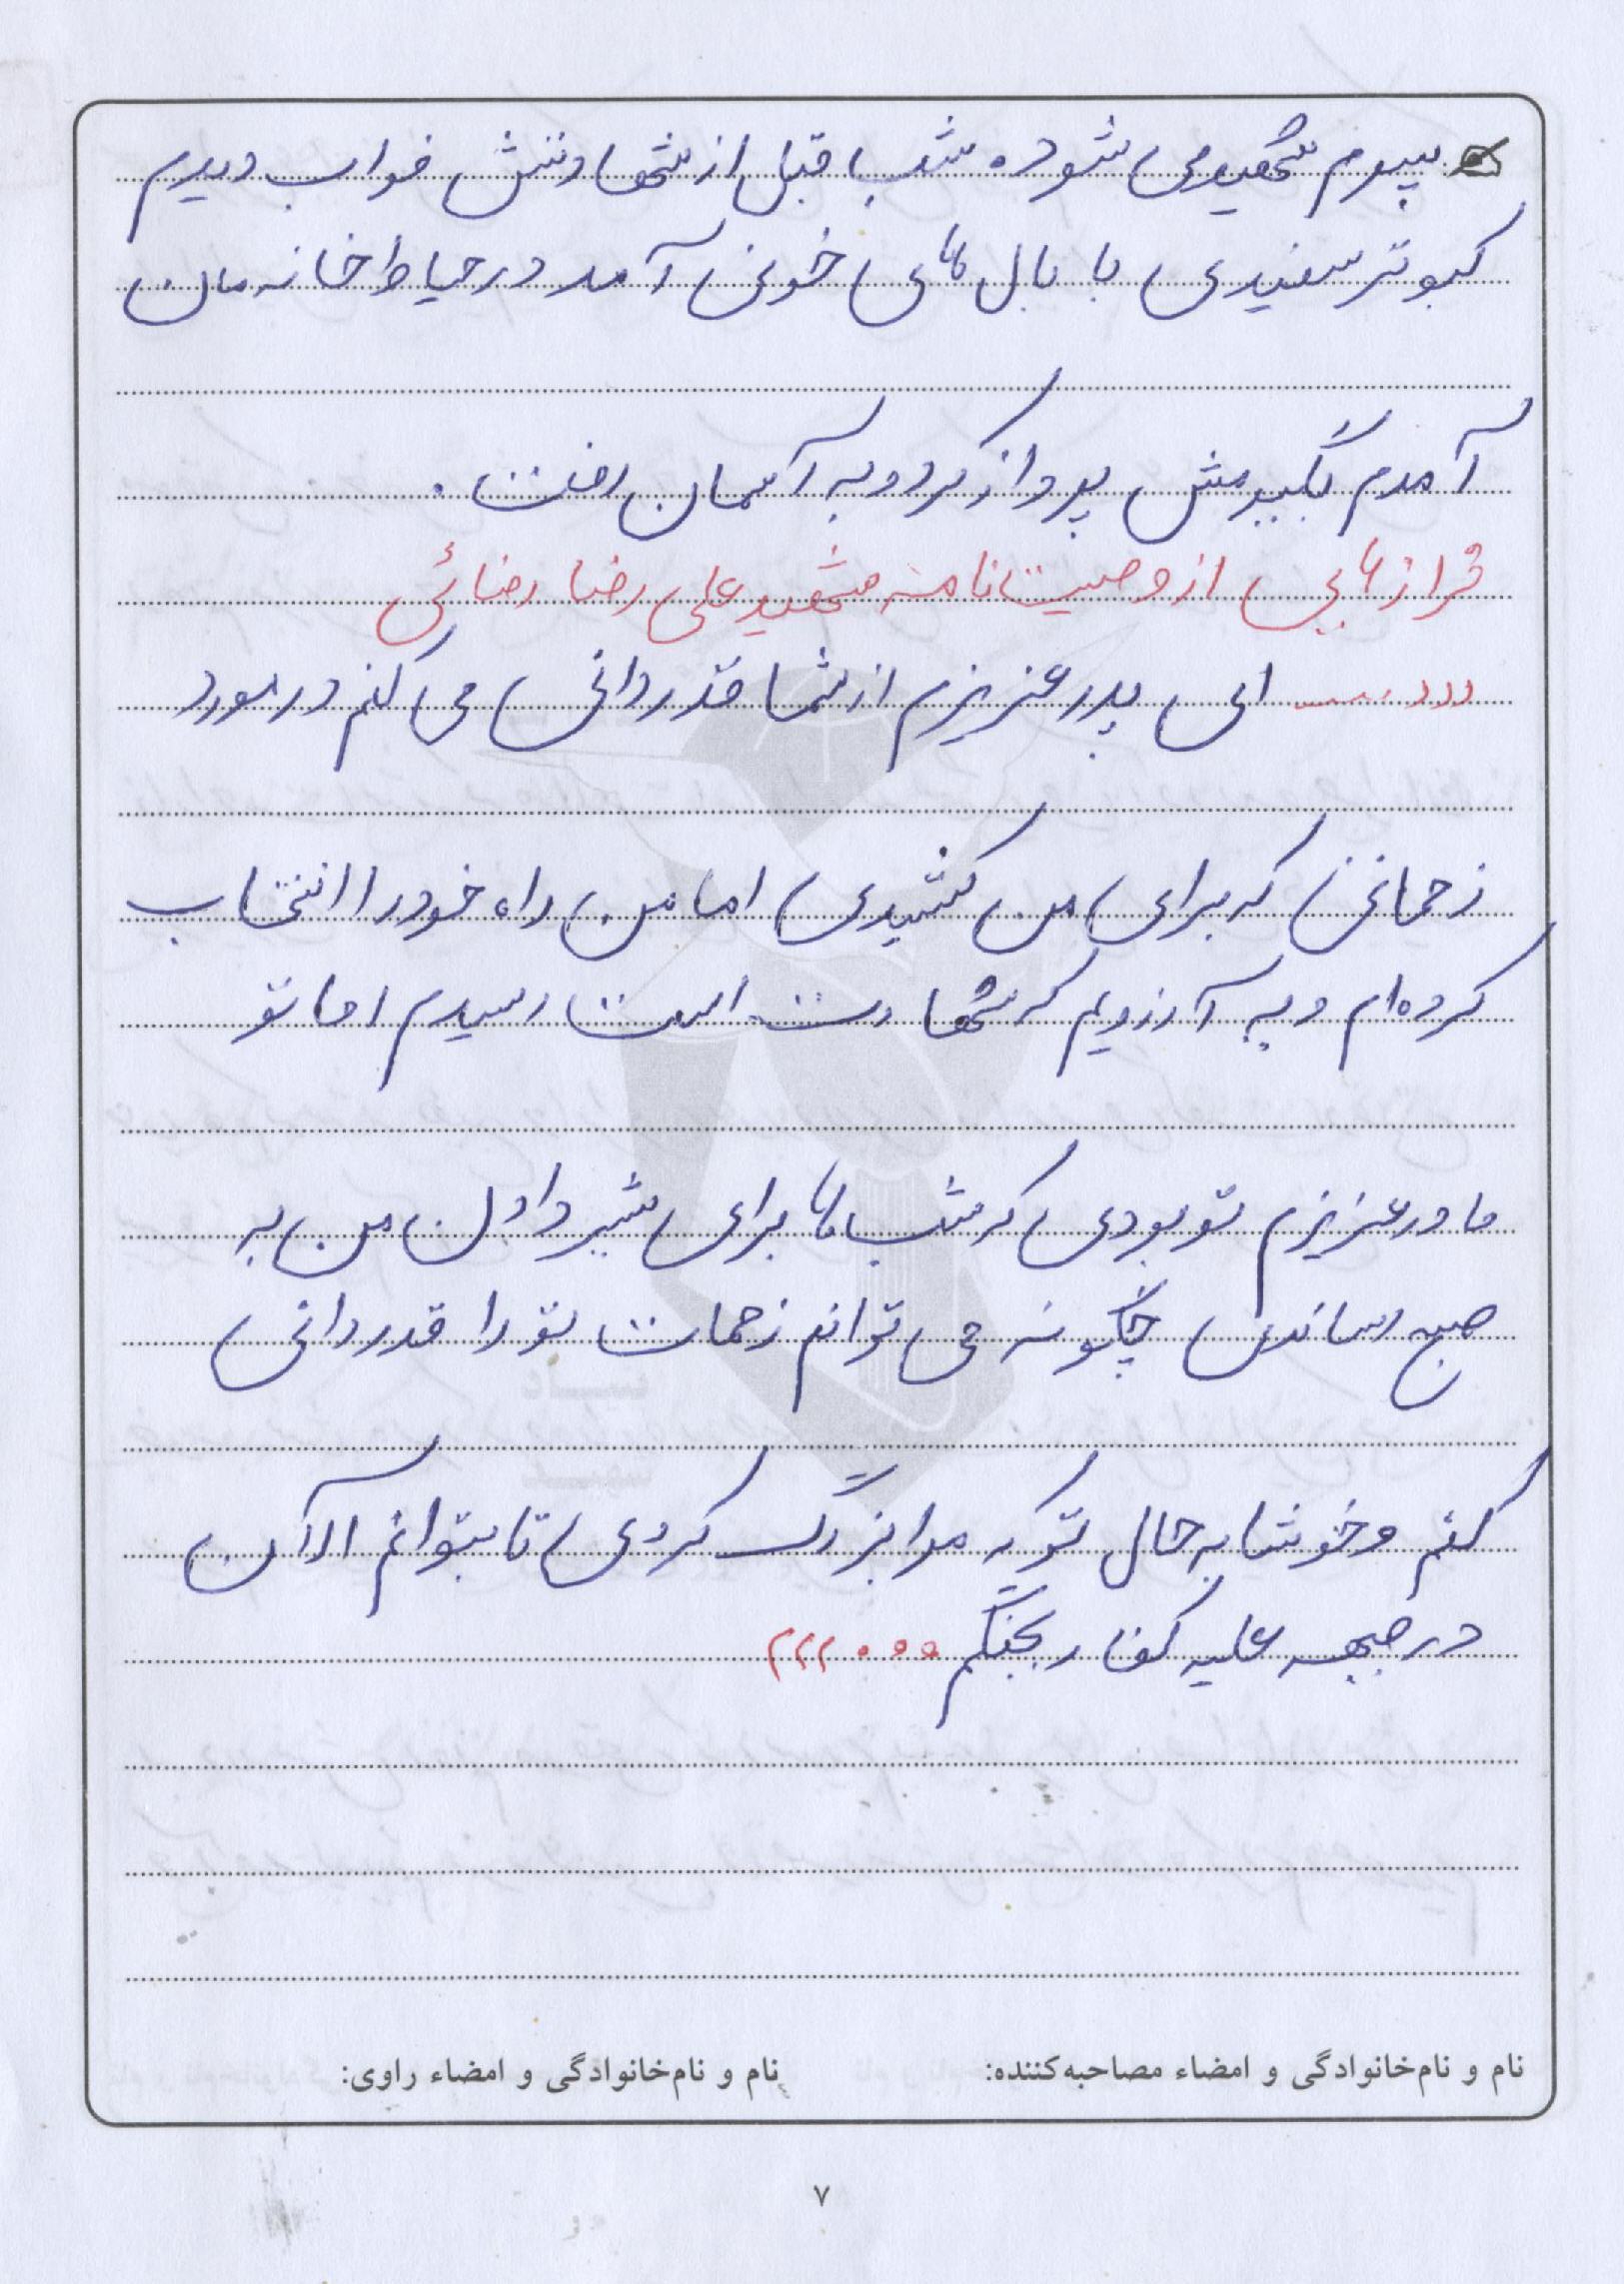 پسرم شهید می شود. شب قبل از شهادتش خواب دیدم
کبوتر سفیدی با بال های خونی آمد در حیاط خانه مان
آمدم بگیرمش پرواز کرد و به آسمان رفت.
فرازهایی از وصیت نامه شهید علی رضا رضائی
ای پدر عزیزم از شما قدردانی می کنم در مورد
زحماتی که برای من کشیدی اما من راه خود را انتخاب
کرده ام و به آرزویم که شهادت است رسیدم اما تو
مادر عزیزم تو بودی که شب ها برای شیر دادن من به
صبح رساندی چگونه می توانم زحمات تو را قدردانی
کنم و خوشا به حال تو که مرا بزرگ کردی تا بتوانم الآن
در جبهه علیه کفار بجنگم ...
نام و نام‌خانوادگی و امضاء مصاحبه‌کننده: نام و نام‌خانوادگی و امضاء راوی:
۷